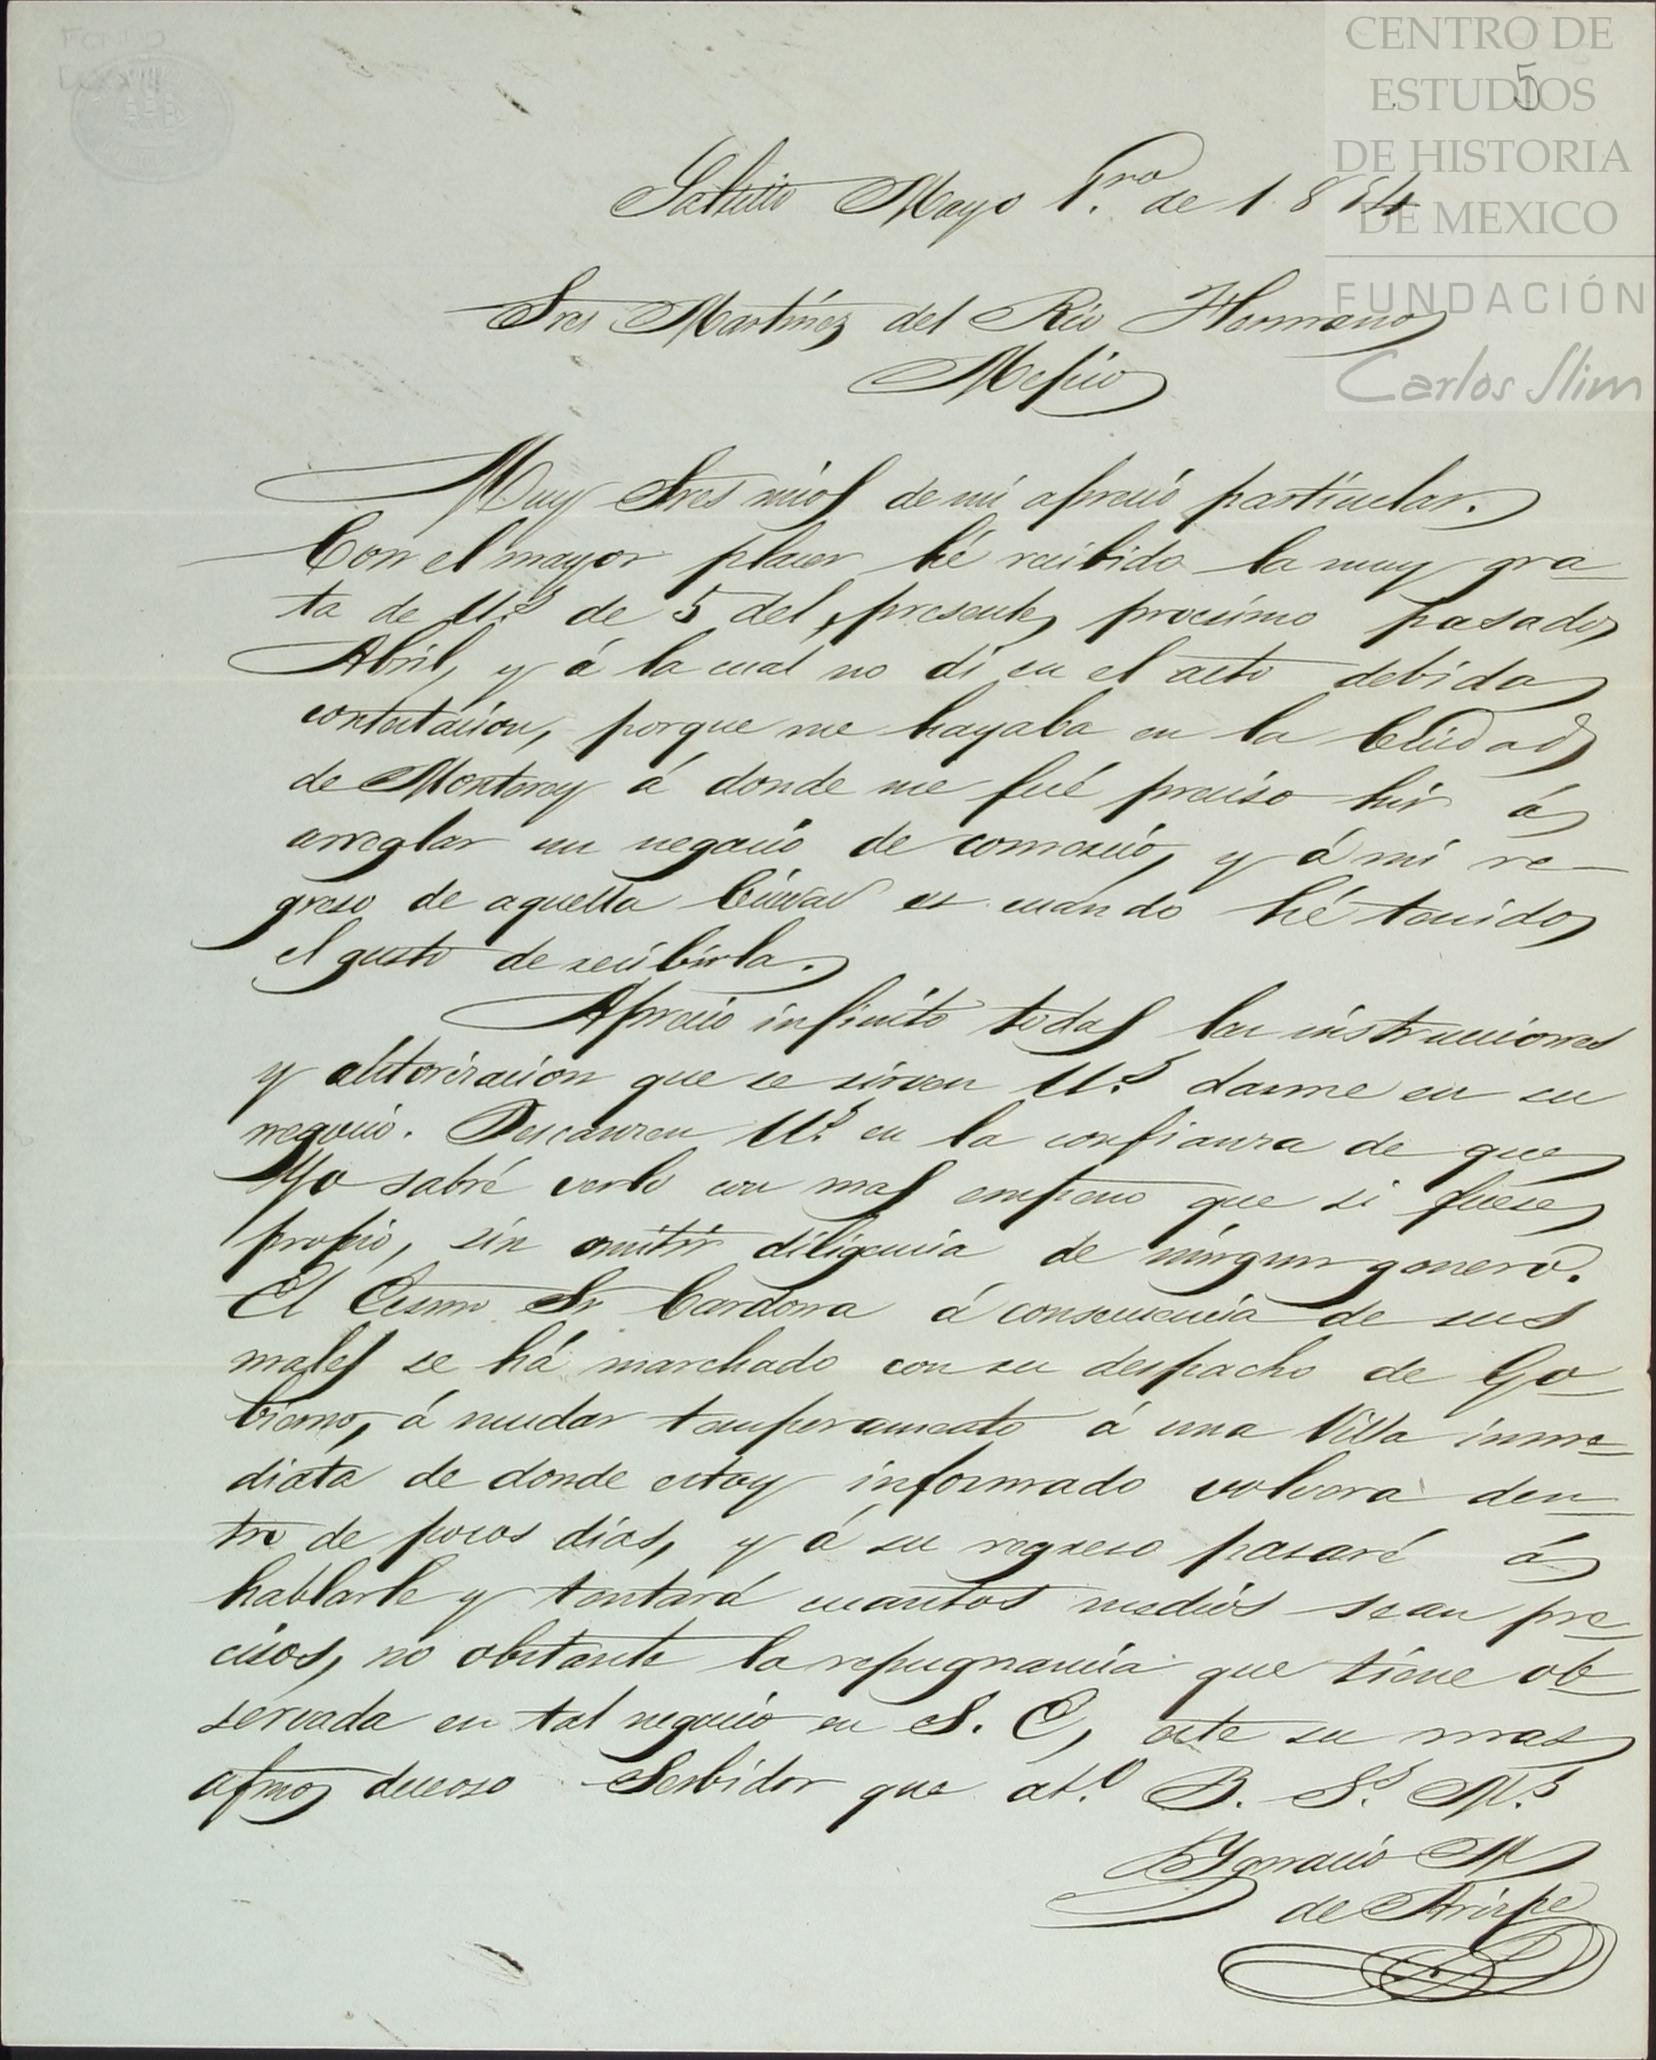 CENTRO DE
ESTUDIOS
DE HISTORIA
DE MEXICO
FUNDACIÓN
Carlos Slim
FONDO
5
Saltillo Mayo 1.ro de 1854
Sres Martínez del Rio Hermanos
Mejico
Muy Sres mios de mi aprecio particular.
Con el mayor placer hé recibido la muy gra-
ta de U.s de 5 del presente, procsimo pasado
Abril, y á la cual no dí en el acto debida
contestacion, porque me hayaba en la Ciudad
de Monterey á donde me fué preciso hir á
arreglar un negocio de comercio, y á mi re-
greso de aquella Ciudad es cuando hé tenido
el gusto de recibirla.
Aprecio infinito todas las instrucciones
y autorizacion que se sirven U.s darme en su
negocio. Descansen U.s en la confianza de que
Yo sabré verlo con mas empeno que si fuese
propio, sin omitir diligencia de ningun genero.
El Ecsmo Sr Cardona á consecuencia de sus
males se há marchado con su despacho de Go-
bierno, á mudar temperamento á una Villa inme-
diata de donde estoy informado volvera den-
tro de pocos dias, y á su regreso pasaré á
hablarle y tentaré cuantos medios sean pre-
cisos, no obstante la repugnancia que tiene ob-
servada en tal negocio en S. E, este su mas
afmo deceoso Serbidor que at.o B. S.s M.s
Ygnacio M
de Arizpe